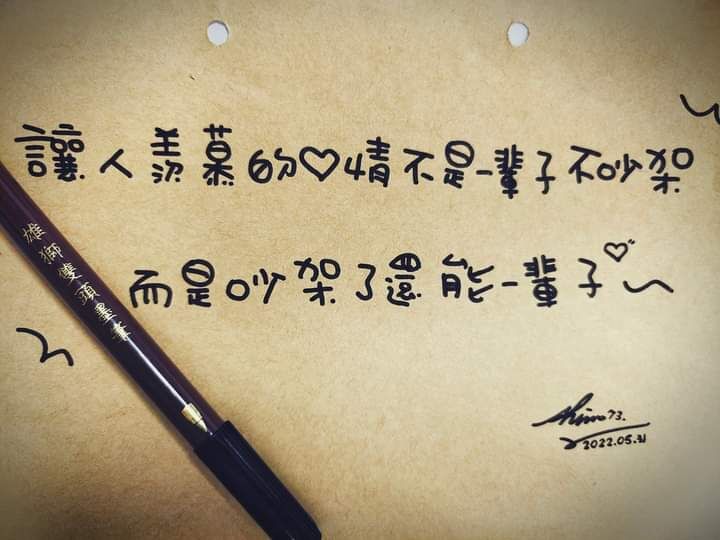 讓人羨慕的♡情不是一輩子不吵架
而是吵架了還能一輩子♡~
雄獅雙頭墨筆
2022.05.31